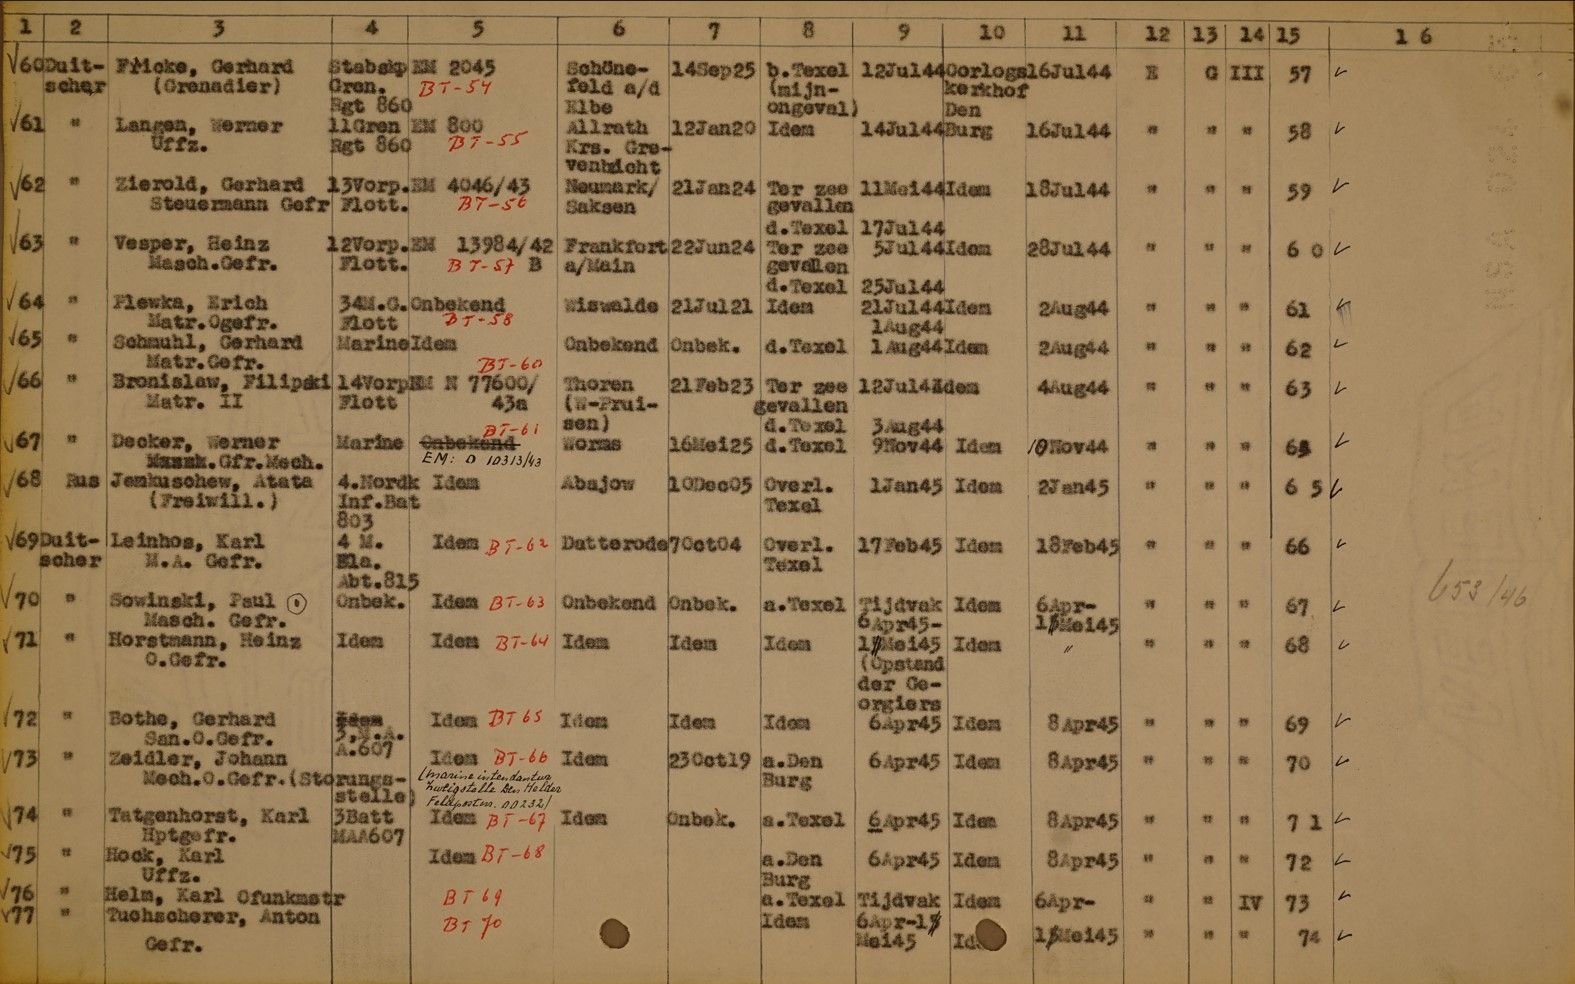 1 2 3 4 5 6 7 8 9 10 11 12 13 14 15 16
√60 Duit- Fricke, Gerhard Stabskp EM 2045 Schöne- 14Sep25 b.Texel 12Jul44 Oorlogs 16Jul44 E G III 57 ✓
scher (Grenadier) Gren. BT-54 feld a/d (mijn- kerkhof
Rgt 860 Elbe ongeval) Den
√61 " Langen, Werner 11Gren EM 800 Allrath 12Jan20 Idem 14Jul44 Burg 16Jul44 " " " 58 ✓
Uffz. Rgt 860 BT-55 Krs. Gre-
venbicht
√62 " Zierold, Gerhard 13Vorp. EM 4046/43 Neumark/ 21Jan24 Ter zee 11Mei44 Idem 18Jul44 " " " 59 ✓
Steuermann Gefr Flott. BT-56 Saksen gevallen
d.Texel 17Jul44
√63 " Vesper, Heinz 12Vorp. EM 13984/42 Frankfort 22Jun24 Ter zee 5Jul44 Idem 28Jul44 " " " 6 0 ✓
Masch.Gefr. Flott. BT-57 B a/Main gevallen
d.Texel 25Jul44
√64 " Plewka, Erich 34M.G. Onbekend Wiswalde 21Jul21 Idem 21Jul44 Idem 2Aug44 " " " 61
Matr.Ogefr. Flott BT-58 1Aug44
√65 " Schmuhl, Gerhard Marine Idem Onbekend Onbek. d.Texel 1Aug44 Idem 2Aug44 " " " 62 ✓
Matr.Gefr. BT-60
√66 " Bronislaw, Filipski 14Vorp EM N 77600/ Thoren 21Feb23 Ter zee 12Jul44 Idem 4Aug44 " " " 63 ✓
Matr. II Flott 43a (W-Prui- gevallen
BT-61 sen) d.Texel 3Aug44
√67 " Decker, Werner Marine Onbekend Worms 16Mei25 d.Texel 9Nov44 Idem 10Nov44 " " " 64 ✓
Gfr.Mech. EM: O 10313/43
√68 Rus Jemkuschew, Atata 4.Nordk Idem Abajow 10Dec05 Overl. 1Jan45 Idem 2Jan45 " " " 6 5 ✓
(Freiwill.) Inf.Bat Texel
803
√69 Duit- Leinhos, Karl 4 M. Idem BT-62 Datterode 7Oct04 Overl. 17Feb45 Idem 18Feb45 " " " 66 ✓
scher M.A. Gefr. Ela. Texel
Abt.815
√70 " Sowinski, Paul Onbek. Idem BT-63 Onbekend Onbek. a.Texel Tijdvak Idem 6Apr- " " " 67 ✓
Masch. Gefr. 6Apr45- 1 Mei45
653/46
√71 " Horstmann, Heinz Idem Idem BT-64 Idem Idem Idem 1 Mei45 Idem " " " " 68 ✓
O.Gefr. (Opstand
der Ge-
orgiers
√72 " Bothe, Gerhard Idem Idem BT 65 Idem Idem Idem 6Apr45 Idem 8Apr45 " " " 69 ✓
San.O.Gefr. 3,M.A.
A.607
√73 " Zeidler, Johann Idem BT-66 Idem 23Oct19 a.Den 6Apr45 Idem 8Apr45 " " " 70 ✓
Mech.O.Gefr.(Storungs- (marine intendantur Burg
stelle) Den Helder
Feldpostnr.
√74 " Tatgenhorst, Karl 3Batt Idem BT-67 Idem Onbek. a.Texel 6Apr45 Idem 8Apr45 " " " 7 1 ✓
Hptgefr. MAA607
√75 " Hock, Karl Idem BT-68 a.Den 6Apr45 Idem 8Apr45 " " " 72 ✓
Uffz. Burg
√76 " Helm, Karl Ofunkmstr BT 69 a.Texel Tijdvak Idem 6Apr- " " IV 73 ✓
√77 " Tuchscherer, Anton BT 70 Idem 6Apr-1
Gefr. Mei45 1 Mei45 " " " 74 ✓